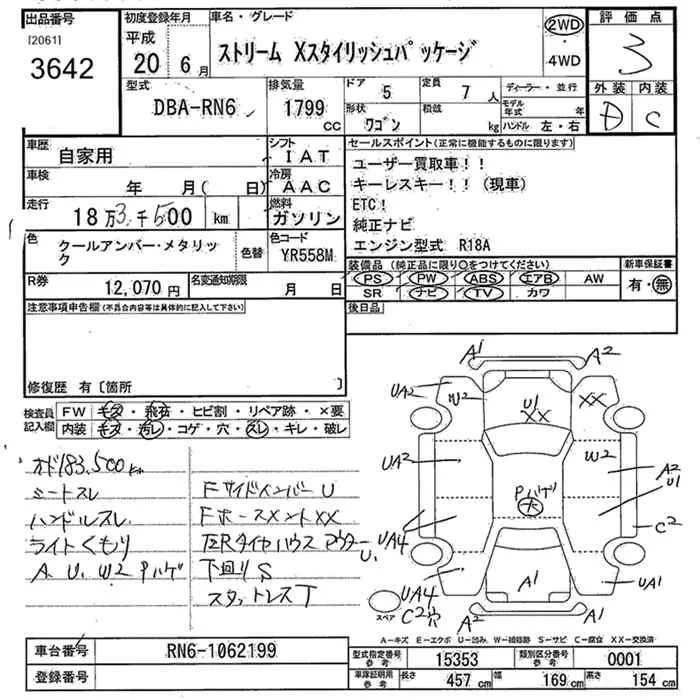 出品番号 初度登録年月 車名・グレード 評価点
[2061] 平成
3642 20年 6月 ストリーム Xスタイリッシュパッケージ 2WD・4WD 3
型式 排気量 ドア 5 定員 7人 ディーラー・並行 外装 内装
DBA-RN6 1799cc 形状 ワゴン 積載 kg モデル年式 年 D C
ハンドル 左・右
車歴 自家用 シフト IAT セールスポイント(正常に機能するものに限ります)
車検 年 月( 日) 冷房 AAC ユーザー買取車!!
走行 18万3千500km 燃料 ガソリン キーレスキー!!(現車)
ETC!
純正ナビ
エンジン型式 R18A
色 クールアンバー・メタリック 色替 色コード YR558M
装備品(純正品に限り○をつけてください) 新車保証書
PS PW ABS エアB AW 有・無
SR ナビ TV カワ
R券 12,070円 名変通知期限 月 日
注意事項申告欄(不具合内容等は具体的に記入して下さい) 後日品
修復歴 有〔箇所 〕
検査員記入欄 FW キズ・飛石・ヒビ割・リペア跡・×要
内装 キズ・汚レ・コゲ・穴・スレ・キレ・破レ
オド183,500km
シートスレ Fサイドインバー U
ハンドルスレ FホースメントXX
ライトくもり 左Rタイヤハウス アウター U1
A U、W2 Pハゲ 下回りS
スタットレスT
A1 A2
UA2 W2 U1 XX XX
UA2 W2 A2 U1
Pハゲ 大
UA4 C2
UA4 A1 UA1
C2穴 A2 A2
スペア
A-キズ E-エクボ U-凹み W-補修跡 S-サビ C-腐食 XX-交換済
車台番号 RN6-1062199 型式指定番号 参考 15353 類別区分番号 参考 0001
登録番号 車庫証明用 参考 長さ 457cm 幅 169cm 高さ 154cm